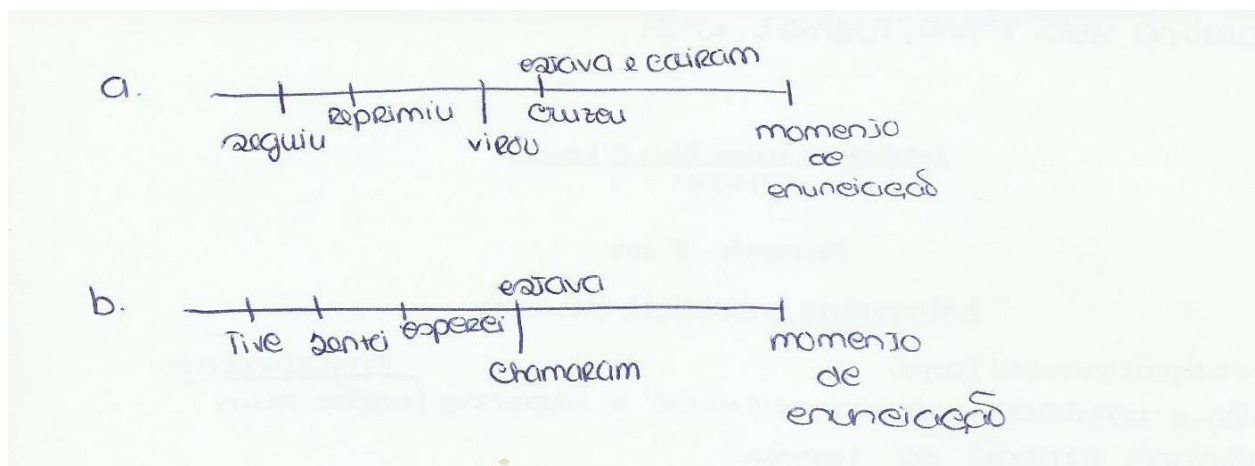 a.
estava e cairam
seguiu reprimiu virou cruzeu
momento
de
enunciação
b.
estava
Tive sentei esperei chamaram
momento
de
enunciação